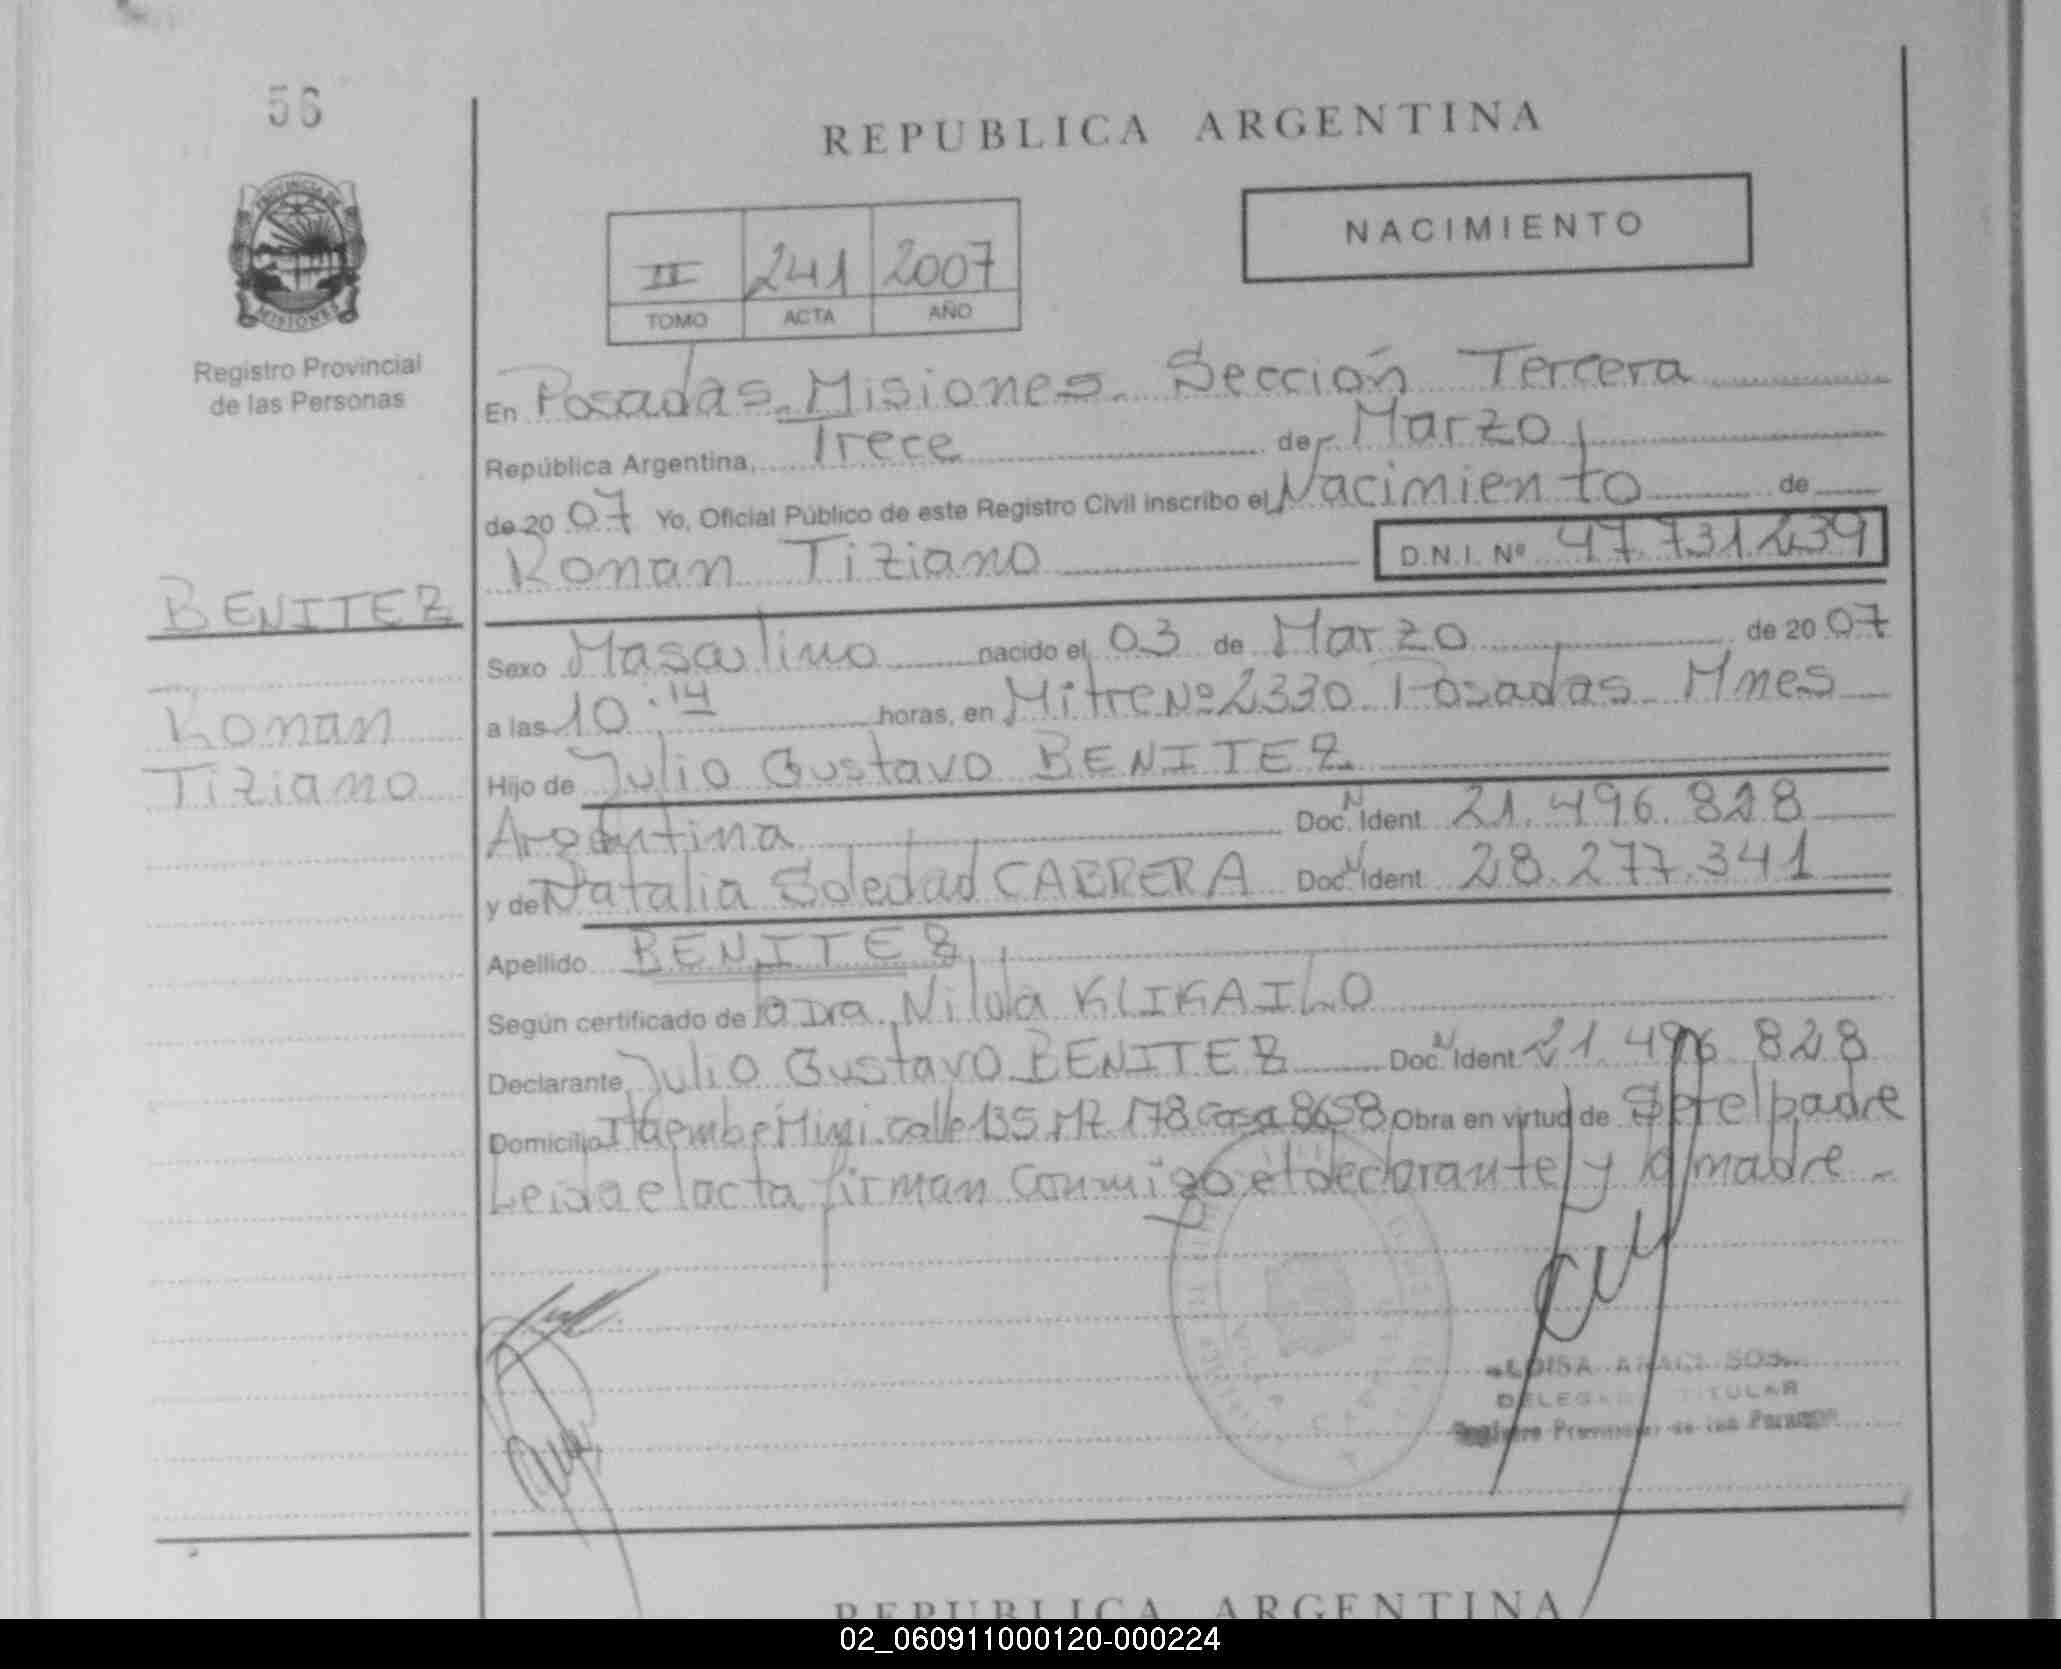 56
REPUBLICA ARGENTINA
PROVINCIA DE
MISIONES
Registro Provincial
de las Personas
NACIMIENTO
II 241 2007
TOMO ACTA AÑO
En Posadas Misiones. Sección Tercera
República Argentina, Trece de Marzo
de 2007 Yo, Oficial Público de este Registro Civil inscribo el Nacimiento de
Ronan Tiziano D.N.I. Nº 47.731.239
BENITEZ
Ronan
Tiziano
Sexo Masculino nacido el 03 de Marzo de 2007
a las 10:14 horas, en Mitre Nº 2330 Posadas Mnes
Hijo de Julio Gustavo BENITEZ
Argentina Doc. N Ident 21.496.828
y de Natalia Soledad CABRERA Doc. N Ident 28.277.341
Apellido BENITEZ
Según certificado de la Dra. KLIKAILO
Declarante Julio Gustavo BENITEZ Doc. N Ident 21.496 828
Domicilio Itaembe Mini calle 135 MZ 178 casa 8658 Obra en virtud de Ser el padre
Leida el acta firman conmigo el declarante y la madre
DELEG TITULAR
02_060911000120-000224
REPUBLICA ARGENTINA